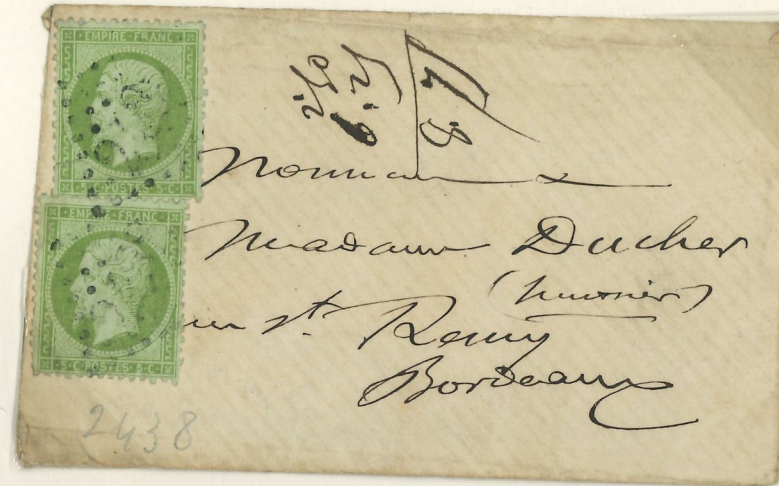 EMPIRE FRANC
5 C POSTES 5 C
EMPIRE FRANC
5 C POSTES 5 C
Monsieur
Madame Ducher
(huissier)
rue St. Remy
Bordeaux
2438